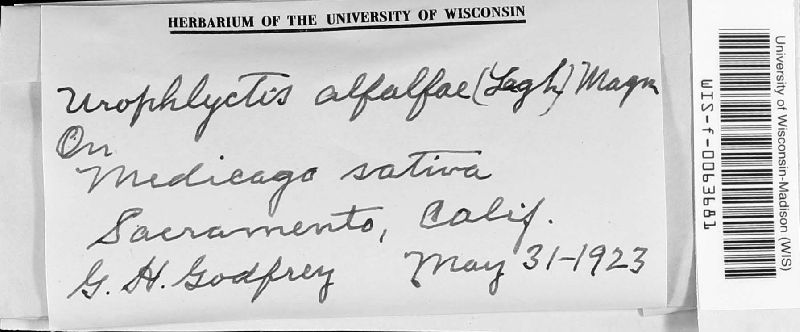 HERBARIUM OF THE UNIVERSITY OF WISCONSIN
Urophlyctis alfalfae (Lagh) Magn
On
Medicago sativa
Sacramento, Calif.
G. H. Godfrey May 31-1923
University of Wisconsin-Madison (WIS)
WIS-f-0063681